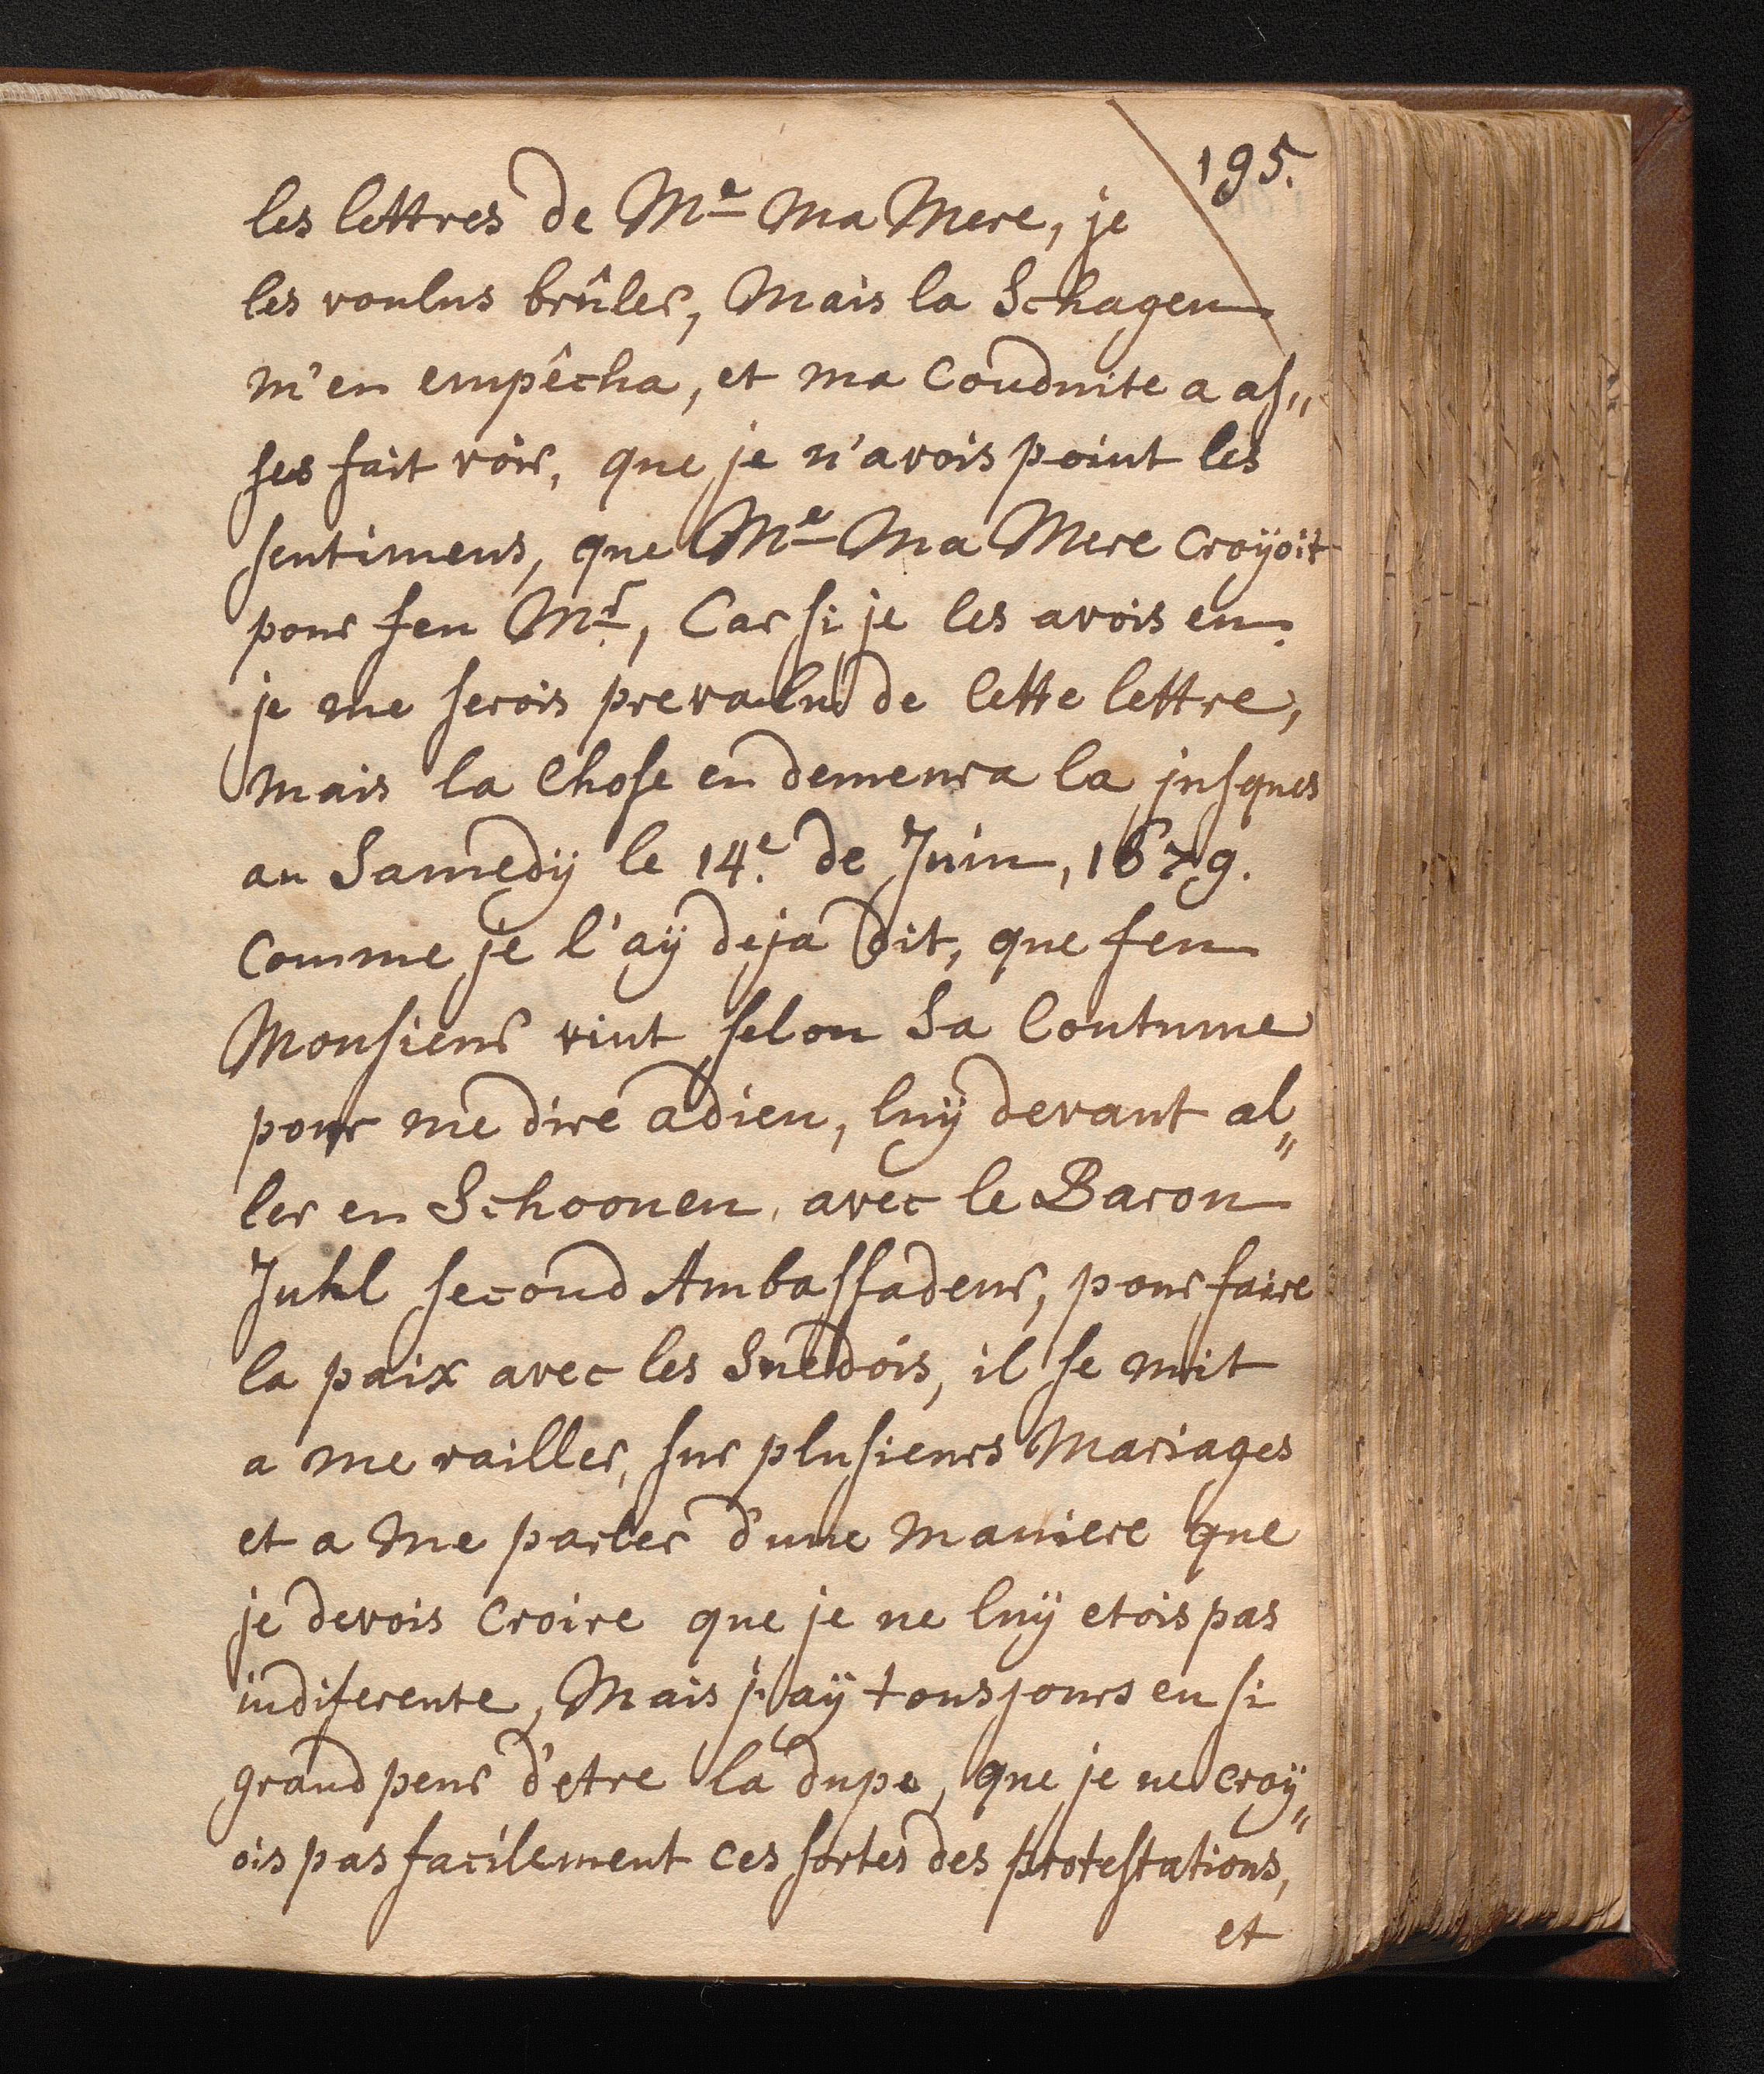 195.
les lettres de Me Ma Mere, je
les voulus brûler, Mais la Schagen
m'en empêcha, et ma Conduite a as„
ses fait voir, que je n'avois point les
sentimens, que Me Ma Mere Croÿoit
pour feu Mr, Car si je les avois eu
je me serois prevalu de Cette lettre,
Mais la Chose en demeura la jusques
au Samedÿ le 14e. de Juin, 1679.
Comme je l'aÿ deja dit, que feu
Monsieur vint selon Sa Coutume
pour me dire adieu, luÿ devant al„
ler en Schoonen avec le Baron
Juhl second Ambassadeur, pour faire
la paix avec les Suedois, il se mit
a me railler, sur plusieurs Mariages
et a me parler d'une Maniere que
je devois Croire que je ne luÿ etois pas
indiferente, Mais j'aÿ tousjours eu si
grand peur d'etre la dupe, que je ne croÿ„
ois pas facilement ces sortes des protestations,
et